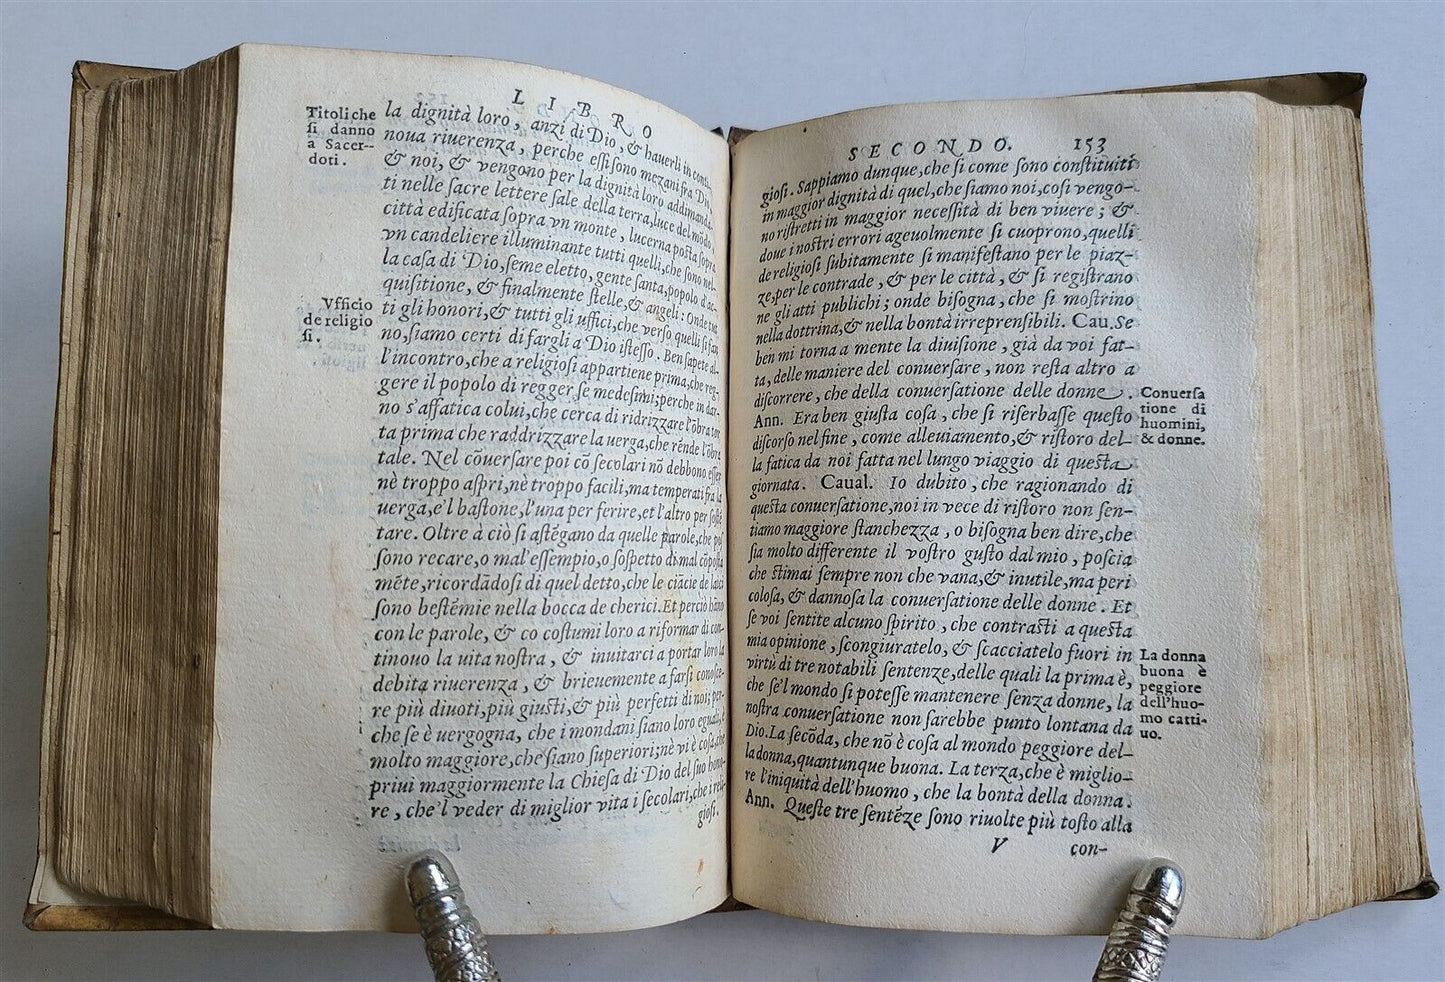 LIBRO
Titoli che
si danno
a Sacer-
doti.
la dignità loro, anzi di Dio, & hauerli in conti-
noua riuerenza, perche essi sono mezani fra Dio,
& noi, & vengono per la dignità loro addimanda-
ti nelle sacre lettere sale della terra, luce del mõdo,
città edificata sopra vn monte, lucerna posta sopra
vn candeliere illuminante tutti quelli, che sono nel-
la casa di Dio, seme eletto, gente santa, popolo d'ac-
quisitione, & finalmente stelle, & angeli: Onde tut
ti gli honori, & tutti gli uffici, che verso quelli si fan
no, siamo certi di fargli a Dio istesso. Ben sapete al-
Vfficio
de religio
si.
l'incontro, che a religiosi appartiene prima, che reg-
gere il popolo di regger se medesimi; perche in dar-
no s'affatica colui, che cerca di ridrizzare l'õbra tor
ta prima che raddrizzare la uerga, che rẽde l'õbra
tale. Nel cõuersare poi cõ secolari nõ debbono esser
nè troppo aspri, nè troppo facili, ma temperati fra la
uerga, e'l bastone, l'una per ferire, et l'altro per sostẽ
tare. Oltre à ciò si astẽgano da quelle parole, che pos
sono recare, o mal'essempio, o sospetto di mal cõposta
mẽte, ricordãdosi di quel detto, che le ciãcie de laici
sono bestẽmie nella bocca de cherici. Et perciò hãno
con le parole, & co costumi loro a riformar di con-
tinouo la uita nostra, & inuitarci a portar loro la
debita riuerenza, & brieuemente a farsi conosce-
re più diuoti, più giusti, & più perfetti di noi; per-
che se è uergogna, che i mondani siano loro eguali, è
molto maggiore, che siano superiori; nè vi è cosa, che
priui maggiormente la Chiesa di Dio del suo hono-
re, che'l veder di miglior vita i secolari, che i reli-
giosi.
SECONDO. 153
giosi. Sappiamo dunque, che si come sono constituiti
in maggior dignità di quel, che siamo noi, cosi vengo-
no ristretti in maggior necessità di ben viuere; &
doue i nostri errori ageuolmente si cuoprono, quelli
de religiosi subitamente si manifestano per le piaz-
ze, per le contrade, & per le città, & si registrano
ne gli atti publichi; onde bisogna, che si mostrino
nella dottrina, & nella bontà irreprensibili. Cau. Se
ben mi torna a mente la diuisione, già da voi fat-
ta, delle maniere del conuersare, non resta altro a
discorrere, che della conuersatione delle donne.
Conuersa
tione di
huomini,
& donne.
Ann. Era ben giusta cosa, che si riserbasse questo
discorso nel fine, come alleuiamento, & ristoro del-
la fatica da noi fatta nel lungo viaggio di questa
giornata. Caual. Io dubito, che ragionando di
questa conuersatione, noi in vece di ristoro non sen-
tiamo maggiore stanchezza, o bisogna ben dire, che
sia molto differente il vostro gusto dal mio, poscia
che stimai sempre non che vana, & inutile, ma peri
colosa, & dannosa la conuersatione delle donne. Et
se voi sentite alcuno spirito, che contrasti a questa
mia opinione, scongiuratelo, & scacciatelo fuori in
virtù di tre notabili sentenze, delle quali la prima è,
che se'l mondo si potesse mantenere senza donne, la
nostra conuersatione non sarebbe punto lontana da
Dio. La secõda, che nõ è cosa al mondo peggiore del-
la donna, quantunque buona. La terza, che è miglio-
re l'iniquità dell'huomo, che la bontà della donna.
La donna
buona è
peggiore
dell'huo-
mo catti-
uo.
Ann. Queste tre sentẽze sono riuolte più tosto alla
V con-